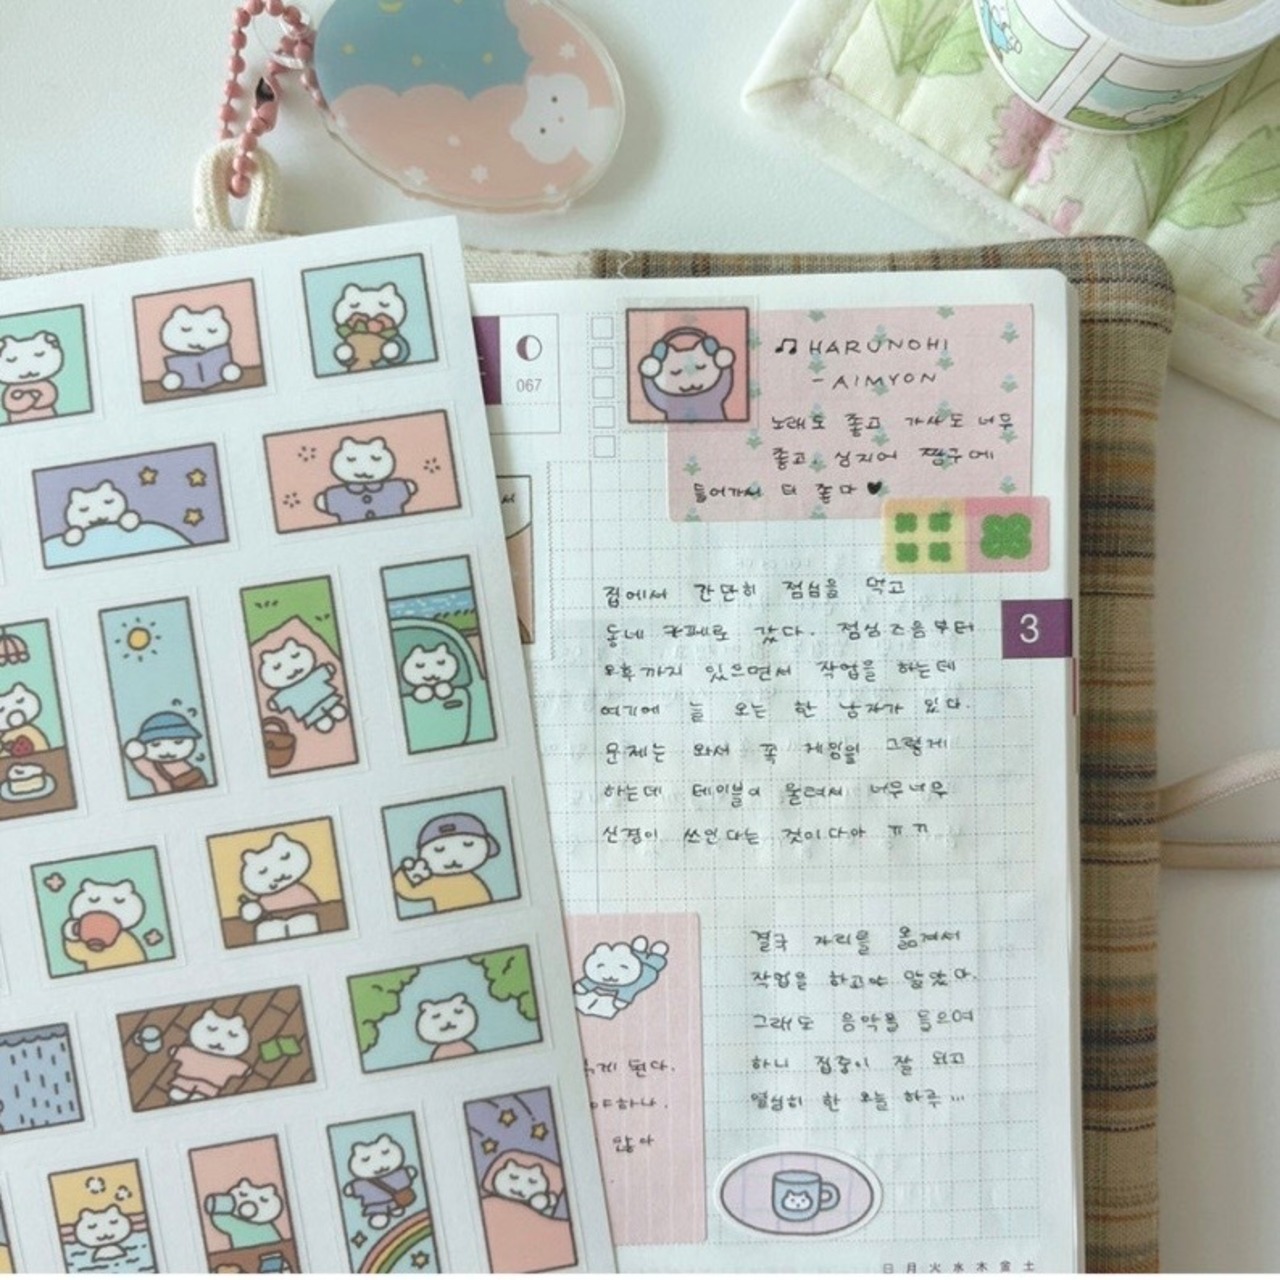 067
♫ HARUNOHI
- AIMYON
노래도 좋고 가사도 너무
좋고, 심지어 짱구에
들어가서 더 좋다 ♥
집에서 간단히 점심을 먹고
동네 카페로 갔다. 점심즈음부터
오후까지 있으면서 작업을 하는데
여기에 늘 오는 한 남자가 있다.
문제는 와서 꼭 게임을 그렇게
하는데 테이블이 울려서 너무너무
신경이 쓰인다는 것이다아 ㅠㅠ
3
결국 자리를 옮겨서
작업을 하고야 말았다.
그래도 음악을 들으며
하니 집중이 잘 되고
열심히 한 오늘 하루...
게 된다.
야하나.
않아
日 月 火 水 木 金 土